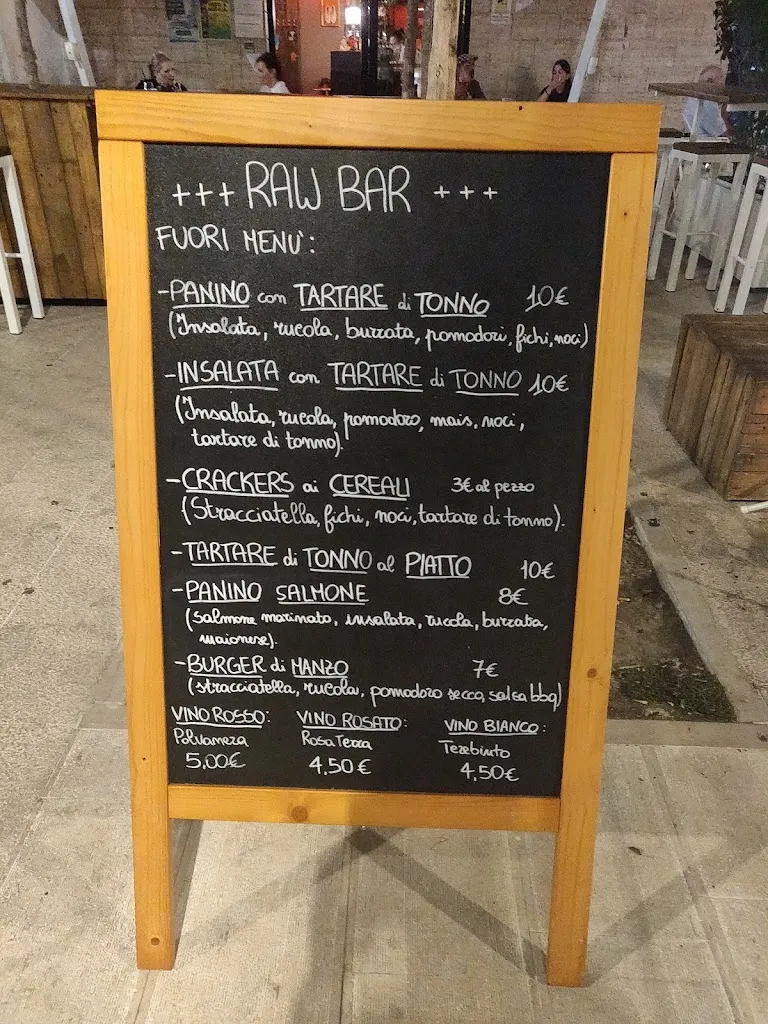 +++ RAW BAR +++
FUORI MENÙ:
-PANINO con TARTARE di TONNO 10€
(Insalata, rucola, burrata, pomodori, fichi, noci)
-INSALATA con TARTARE di TONNO 10€
(Insalata, rucola, pomodoro, mais, noci,
tartare di tonno).
-CRACKERS ai CEREALI 3€ al pezzo
(Stracciatella, fichi, noci, tartare di tonno).
-TARTARE di TONNO al PIATTO 10€
-PANINO SALMONE 8€
(Salmone marinato, insalata, rucola, burrata,
maionese).
-BURGER di MANZO 7€
(stracciatella, rucola, pomodoro secco, salsa bbq)
VINO ROSSO: VINO ROSATO: VINO BIANCO:
Polvanera Rosa Terra Terebinto
5,00€ 4,50€ 4,50€